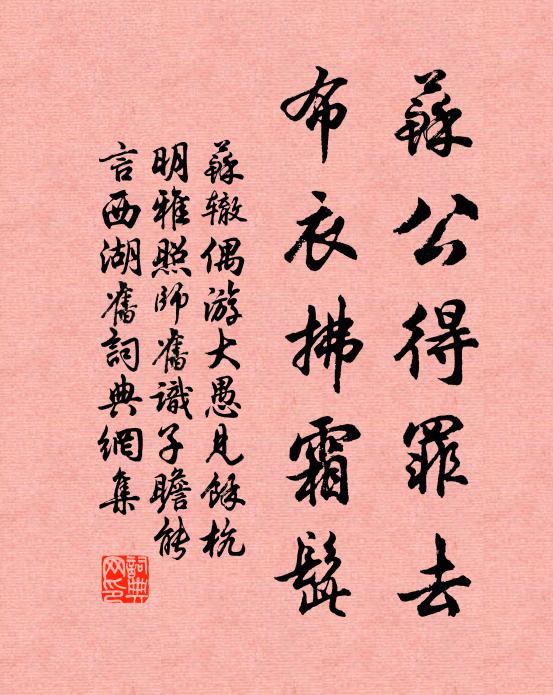 蘇公得罪去
布衣拂霜髭
蘇轍偶游大愚見餘杭
明雅照師舊識子瞻能
言西湖舊詞典網集
詞典网印